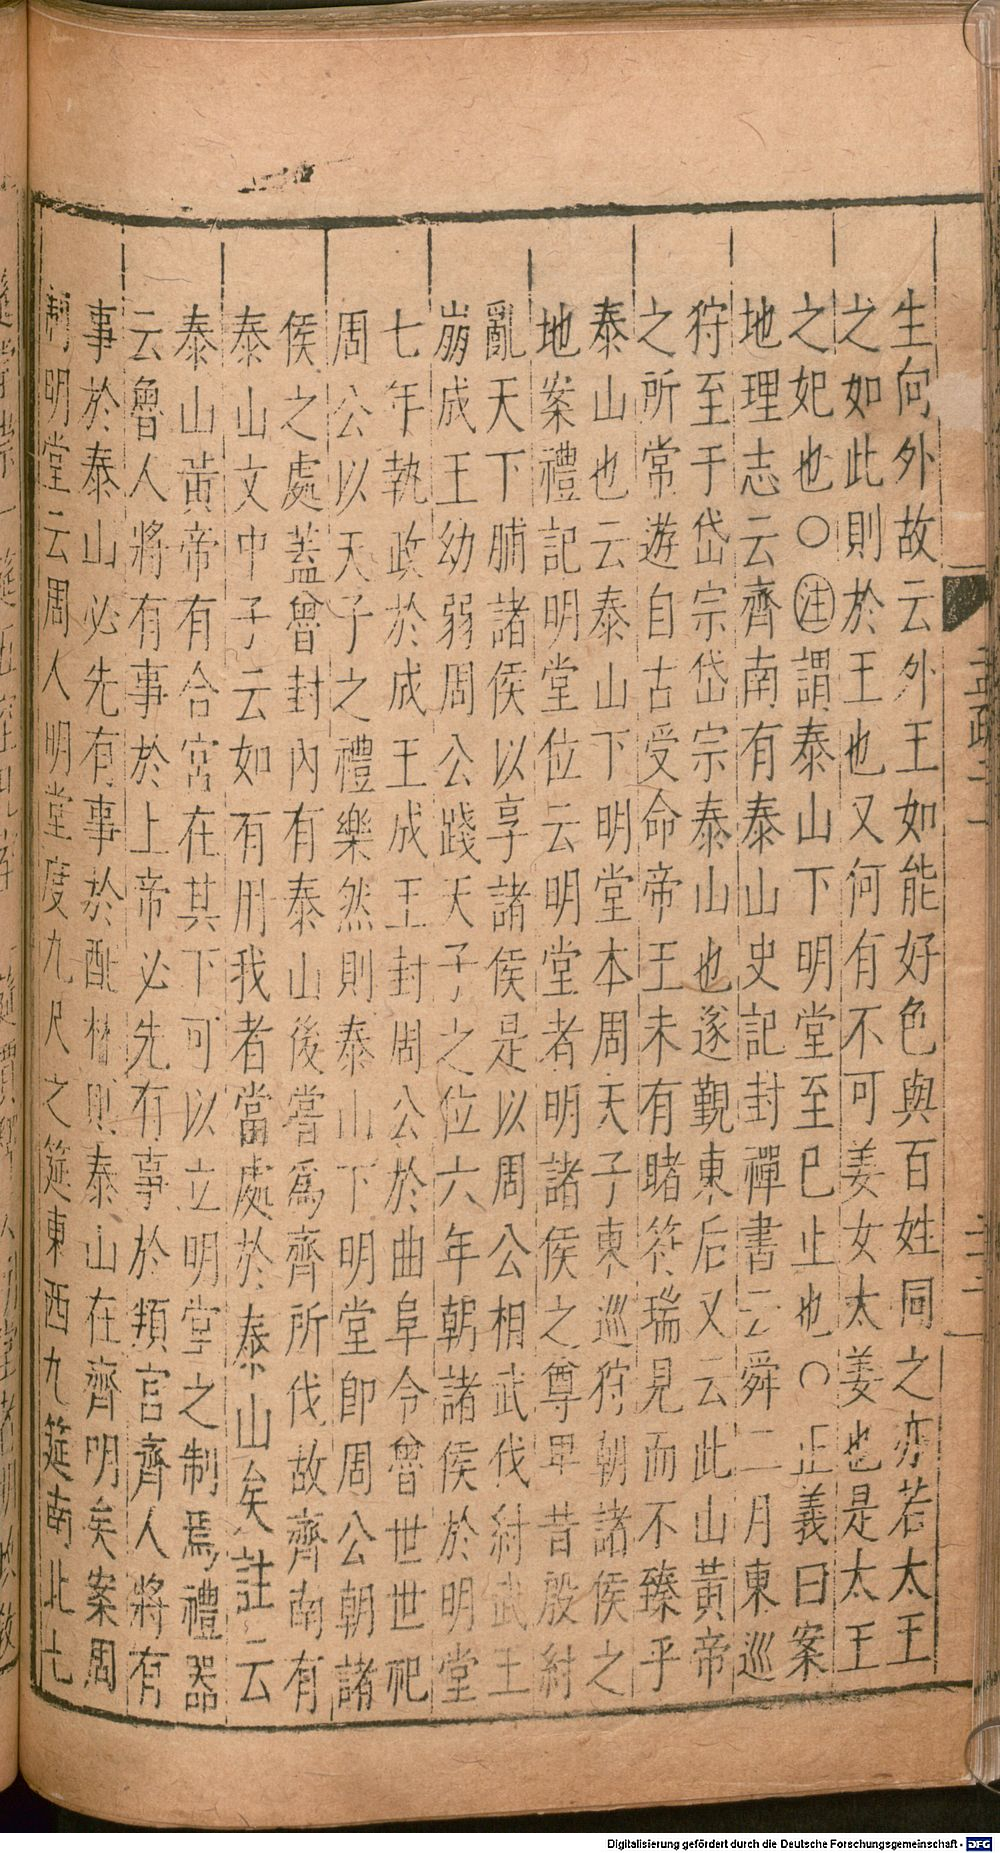 生向外故云外王如能好色與百姓同之亦若太王
之如此則於王也又何有不可姜女太姜也是太王
之妃也○注謂泰山下明堂至巳止也○正義曰案
地理志云齊南有泰山史記封禪書云舜二月東巡
狩至于岱宗岱宗泰山也遂覲東后又云此山黃帝
之所常遊自古受命帝王未有睹符瑞見而不臻乎
泰山也云泰山下明堂本周天子東巡狩朝諸侯之
地案禮記明堂位云明堂者明諸侯之尊卑昔殷紂
亂天下脯諸侯以享諸侯是以周公相武伐紂武王
崩成王幼弱周公踐天子之位六年朝諸侯於明堂
七年執政於成王成王封周公於曲阜令魯世世祀
周公以天子之禮樂然則泰山下明堂即周公朝諸
侯之處蓋魯封內有泰山後嘗爲齊所伐故齊南有
泰山文中子云如有用我者當處於泰山矣註云
泰山黃帝有合宮在其下可以立明堂之制焉禮器
云魯人將有事於上帝必先有事於頖宮齊人將有
事於泰山必先有事於配林則泰山在齊明矣案周
制明堂云周人明堂度九尺之筵東西九筵南北七
孟疏二
Digitalisierung gefördert durch die Deutsche Forschungsgemeinschaft - DFG